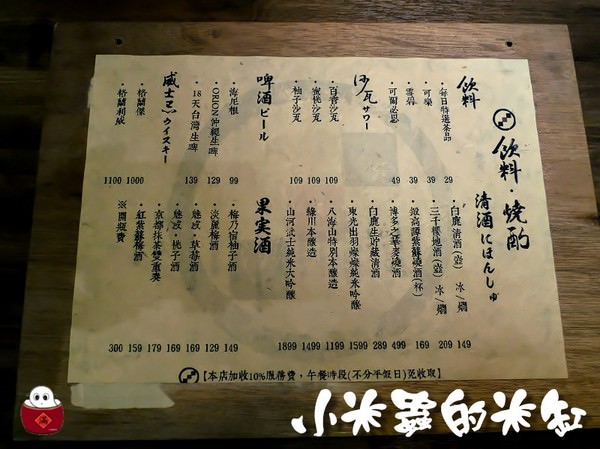 飲料・燒酌
飲料
・每日特選茶品 29
・可樂 39
・雪碧 39
・可爾必思 49
沙瓦サワー
・百香沙瓦 109
・蜜桃沙瓦 109
・柚子沙瓦 109
啤酒ビール
・海尼根 99
・ORION沖繩生啤 129
・18天台灣生啤 139
威士忌ウイスキー
・格蘭傑 1000
・格蘭利威 1100
清酒にほんしゅ
・白鹿清酒(壺) 冰/燗 149
・三千櫻地酒(壺) 冰/燗 209
・鍛高譚紫蘇燒酒(杯) 169
・博多之華麥燒酒 499
・白鹿生貯藏清酒 289
・東光出羽燦燦純米吟釀 1599
・八海山特別本釀造 1199
・綠川本釀造 1499
・山河武士純米大吟釀 1899
果実酒
・梅乃宿柚子酒 149
・淡麗梅酒 129
・魅惑・草莓酒 169
・魅惑・桃子酒 169
・京都抹茶雙重奏 179
・紅紫蘇梅酒 159
※開瓶費 300
【本店加收10%服務費，午餐時段(不分平假日)免收取】
小米蟲的米缸